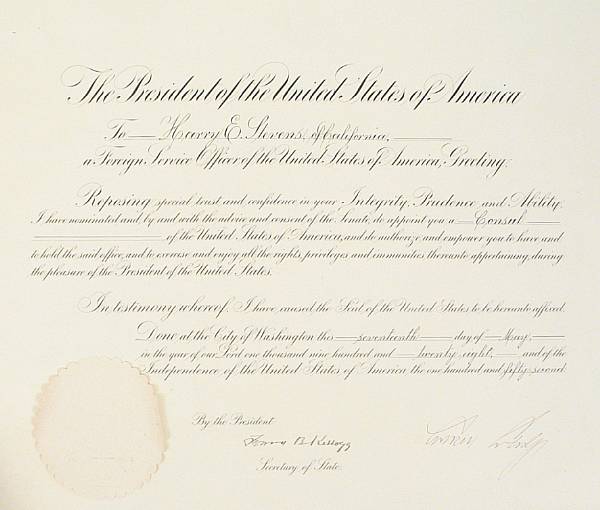 The President of the United States of America
To Harry E. Stevens, of California,
a Foreign Service Officer of the United States of America, Greeting:
Reposing special trust and confidence in your Integrity, Prudence and Ability,
I have nominated and, by and with the advice and consent of the Senate, do appoint you a Consul
of the United States of America, and do authorize and empower you to have and
to hold the said office, and to exercise and enjoy all the rights, privileges and immunities thereunto appertaining, during
the pleasure of the President of the United States.
In testimony whereof, I have caused the Seal of the United States to be hereunto affixed.
Done at the City of Washington this seventeenth day of May,
in the year of our Lord one thousand nine hundred and twenty eight, and of the
Independence of the United States of America the one hundred and fifty second.
By the President
B. Kellogg
Secretary of State.